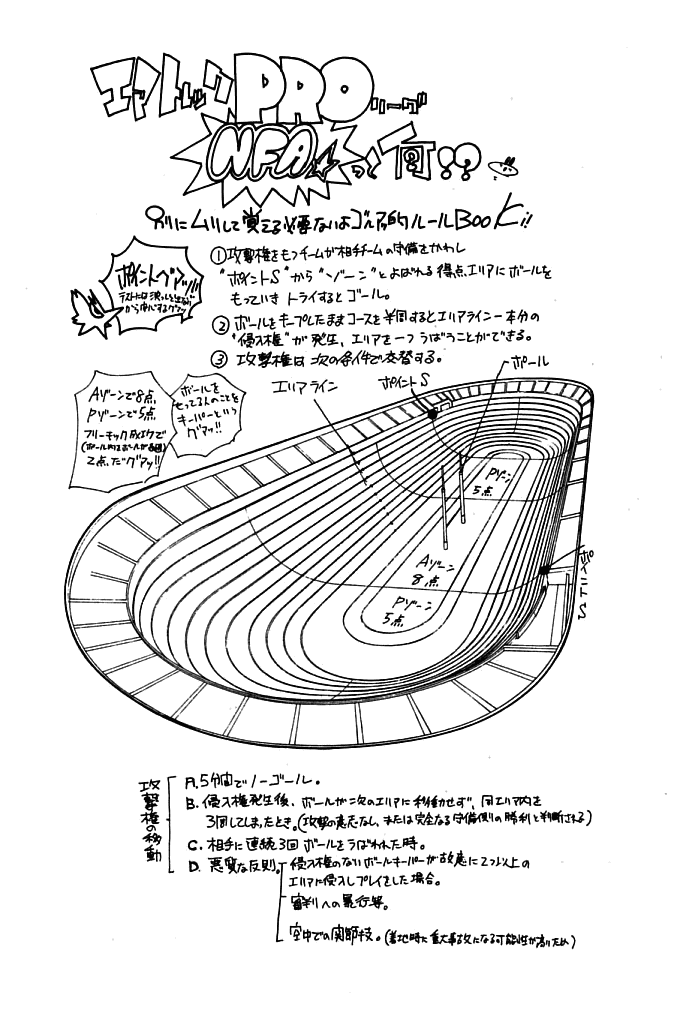 エア・トレックPROリーグ
NFA☆って何!??
別にムリして覚える必要ないよゴルァ的ルールBooK!!
ポイントグアッ!!
テストには
①攻撃権をもつチームが相手チームの守備をかわし
"ポイントS"から"ゾーン"とよばれる得点エリアにボールを
もっていきトライするとゴール。
②ボールをキープしたままコースを半周するとエリアライン一本分の
"侵入権"が発生、エリアを一つうばうことができる。
③攻撃権は次の条件で交替する。
Aゾーンで8点
Pゾーンで5点
フリーキック成功で
2点だグアッ!!
ボールを
もってる人のことを
キーパーという
グアッ!!
エリアライン
ポイントS
ポール
Pゾーン
5点
Aゾーン
8点
Pゾーン
5点
ポイントS
攻撃権の移動
A.5分間でノーゴール。
B.侵入権発生後、ボールが次のエリアに移動せず、同エリア内を
3回してしまったとき。(攻撃の意志なし、または完全なる守備側の勝利と判断される)
C.相手に連続3回ボールをうばわれた時。
D.悪質な反則。
侵入権のないボールキーパーが故意に2つ以上の
エリアに侵入しプレイをした場合。
審判への暴行等。
空中での関節技。(着地時に重大事故になる可能性が高いため)